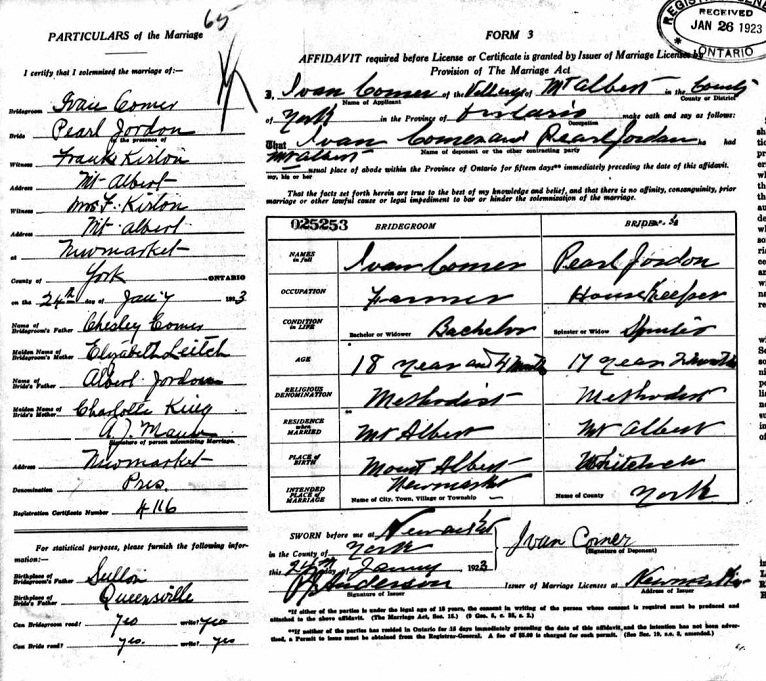 65
PARTICULARS of the Marriage
I certify that I solemnized the marriage of:—
Bridegroom Ivan Comer
Bride Pearl Jordon
in the presence of
Witness Frank Kirlon
Address Mt Albert
Witness Mrs F. Kirlon
Address Mt Albert
at Newmarket
County of York ONTARIO
on the 24th day of Jany 1923
Name of Bridegroom's Father Chesley Comer
Maiden Name of Bridegroom's Mother Elizabeth Leitch
Name of Bride's Father Albert Jordon
Maiden Name of Bride's Mother Charlotte King
Signature of person solemnizing Marriage.
Address Newmarket
Denomination Pres.
Registration Certificate Number 4116
For statistical purposes, please furnish the following information:—
Birthplace of Bridegroom's Father
Birthplace of Bride's Father Queensville
Can Bridegroom read? yes write? yes
Can Bride read? yes. write? yes
REGISTRAR GENERAL
RECEIVED
JAN 26 1923
ONTARIO
FORM 3
AFFIDAVIT required before License or Certificate is granted by Issuer of Marriage Licenses by
Provision of The Marriage Act
I, Ivan Comer of the Village of Mt Albert in the County
Name of Applicant County or District
of York in the Province of Ontario make oath and say as follows:
Occupation
That Ivan Comer and Pearl Jordan he had
Name of deponent or the other contracting party
Mt Albert usual place of abode within the Province of Ontario for fifteen days** immediately preceding the date of this affidavit.
my, his or her
That the facts set forth herein are true to the best of my knowledge and belief, and that there is no affinity, consanguinity, prior
marriage or other lawful cause or legal impediment to bar or hinder the solemnization of the marriage.
025253 BRIDEGROOM BRIDE
NAMES in full Ivan Comer Pearl Jordon
OCCUPATION Farmer HouseKeeper
CONDITION IN LIFE Bachelor or Widower Bachelor Spinster or Widow Spinster
AGE 18 year and 4 months 17 year 2 months
RELIGIOUS DENOMINATION Methodist Methodist
RESIDENCE when MARRIED Mt Albert Mt Albert
PLACE OF BIRTH Mount Albert Whitchurch
INTENDED PLACE OF MARRIAGE Newmarket York
Name of City, Town, Village or Township Name of County
SWORN before me at Newmarket
in the County of York
this 24th day of January 1923
Ivan Comer
(Signature of Deponent)
Anderson Issuer of Marriage Licenses at Newmarket
Signature of Issuer Address of Issuer
*If either of the parties is under the legal age of 18 years, the consent in writing of the person whose consent is required must be produced and
attached to the above affidavit. (The Marriage Act, Sec. 15.)
**If neither of the parties has resided in Ontario for 15 days immediately preceding the date of this affidavit, and the intention has not been advertised,
a Permit to issue must be obtained from the Registrar-General. A fee of $5.00 is charged for each permit.